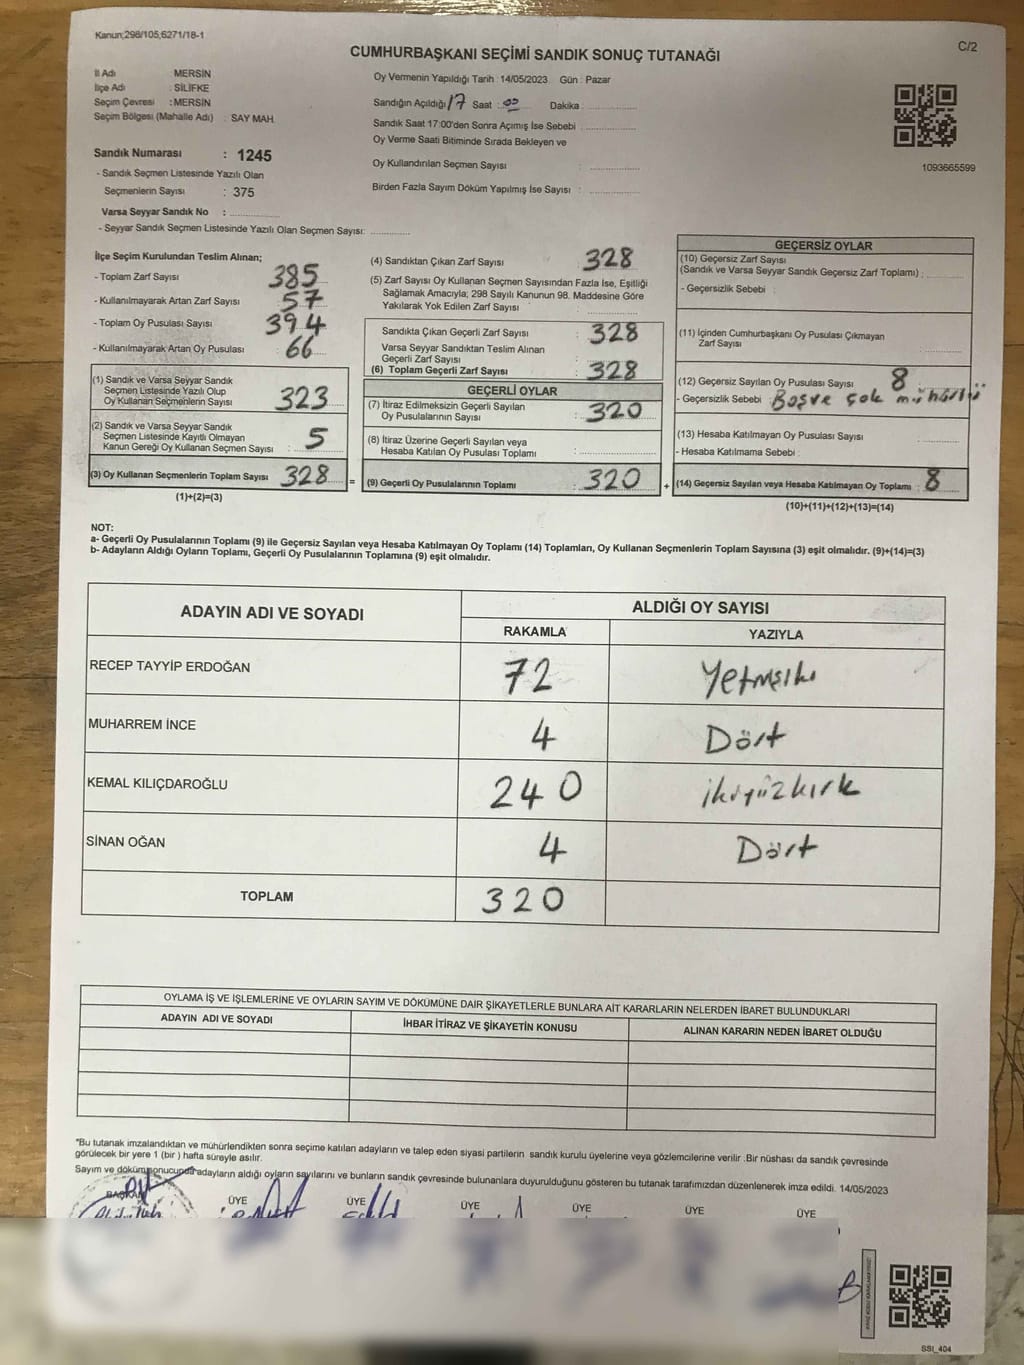 Kanun;298/105,6271/18-1
C/2
CUMHURBAŞKANI SEÇİMİ SANDIK SONUÇ TUTANAĞI
İl Adı MERSİN
İlçe Adı : SİLİFKE
Seçim Çevresi : MERSİN
Seçim Bölgesi (Mahalle Adı) : SAY MAH.
Sandık Numarası : 1245
- Sandık Seçmen Listesinde Yazılı Olan
Seçmenlerin Sayısı : 375
Varsa Seyyar Sandık No :
- Seyyar Sandık Seçmen Listesinde Yazılı Olan Seçmen Sayısı:
Oy Vermenin Yapıldığı Tarih : 14/05/2023 Gün : Pazar
Sandığın Açıldığı 17 Saat : 00 Dakika :
Sandık Saat 17:00'den Sonra Açımış İse Sebebi :
Oy Verme Saati Bitiminde Sırada Bekleyen ve
Oy Kullandırılan Seçmen Sayısı :
Birden Fazla Sayım Döküm Yapılmış İse Sayısı :
1093665599
İlçe Seçim Kurulundan Teslim Alınan;
- Toplam Zarf Sayısı 385
- Kullanılmayarak Artan Zarf Sayısı : 57
- Toplam Oy Pusulası Sayısı 394
- Kullanılmayarak Artan Oy Pusulası : 66
(1) Sandık ve Varsa Seyyar Sandık
Seçmen Listesinde Yazılı Olup
Oy Kullanan Seçmenlerin Sayısı 323
(2) Sandık ve Varsa Seyyar Sandık
Seçmen Listesinde Kayıtlı Olmayan
Kanun Gereği Oy Kullanan Seçmen Sayısı : 5
(3) Oy Kullanan Seçmenlerin Toplam Sayısı 328 =
(1)+(2)=(3)
(4) Sandıktan Çıkan Zarf Sayısı 328
(5) Zarf Sayısı Oy Kullanan Seçmen Sayısından Fazla İse, Eşitliği
Sağlamak Amacıyla; 298 Sayılı Kanunun 98. Maddesine Göre
Yakılarak Yok Edilen Zarf Sayısı :
Sandıkta Çıkan Geçerli Zarf Sayısı : 328
Varsa Seyyar Sandıktan Teslim Alınan
Geçerli Zarf Sayısı :
(6) Toplam Geçerli Zarf Sayısı : 328
GEÇERLİ OYLAR
(7) İtiraz Edilmeksizin Geçerli Sayılan
Oy Pusulalarının Sayısı : 320
(8) İtiraz Üzerine Geçerli Sayılan veya
Hesaba Katılan Oy Pusulası Toplamı :
(9) Geçerli Oy Pusulalarının Toplamı : 320 +
GEÇERSİZ OYLAR
(10) Geçersiz Zarf Sayısı
(Sandık ve Varsa Seyyar Sandık Geçersiz Zarf Toplamı) :
- Geçersizlik Sebebi :
(11) İçinden Cumhurbaşkanı Oy Pusulası Çıkmayan
Zarf Sayısı :
(12) Geçersiz Sayılan Oy Pusulası Sayısı : 8
- Geçersizlik Sebebi : Boş ve çok mühürlü
(13) Hesaba Katılmayan Oy Pusulası Sayısı :
- Hesaba Katılmama Sebebi :
(14) Geçersiz Sayılan veya Hesaba Katılmayan Oy Toplamı : 8
(10)+(11)+(12)+(13)=(14)
NOT:
a- Geçerli Oy Pusulalarının Toplamı (9) ile Geçersiz Sayılan veya Hesaba Katılmayan Oy Toplamı (14) Toplamları, Oy Kullanan Seçmenlerin Toplam Sayısına (3) eşit olmalıdır. (9)+(14)=(3)
b- Adayların Aldığı Oyların Toplamı, Geçerli Oy Pusulalarının Toplamına (9) eşit olmalıdır.
ADAYIN ADI VE SOYADI ALDIĞI OY SAYISI
RAKAMLA YAZIYLA
RECEP TAYYİP ERDOĞAN 72 Yetmişiki
MUHARREM İNCE 4 Dört
KEMAL KILIÇDAROĞLU 240 ikiyüzkırk
SİNAN OĞAN 4 Dört
TOPLAM 320
OYLAMA İŞ VE İŞLEMLERİNE VE OYLARIN SAYIM VE DÖKÜMÜNE DAİR ŞİKAYETLERLE BUNLARA AİT KARARLARIN NELERDEN İBARET BULUNDUKLARI
ADAYIN ADI VE SOYADI İHBAR İTİRAZ VE ŞİKAYETİN KONUSU ALINAN KARARIN NEDEN İBARET OLDUĞU
*Bu tutanak imzalandıktan ve mühürlendikten sonra seçime katılan adayların ve talep eden siyasi partilerin sandık kurulu üyelerine veya gözlemcilerine verilir .Bir nüshası da sandık çevresinde
görülecek bir yere 1 (bir ) hafta süreyle asılır.
Sayım ve döküm sonucunda adayların aldığı oyların sayılarını ve bunların sandık çevresinde bulunanlara duyurulduğunu gösteren bu tutanak tarafımızdan düzenlenerek imza edildi. 14/05/2023
BAŞKAN ÜYE ÜYE ÜYE ÜYE ÜYE ÜYE
SSI_404